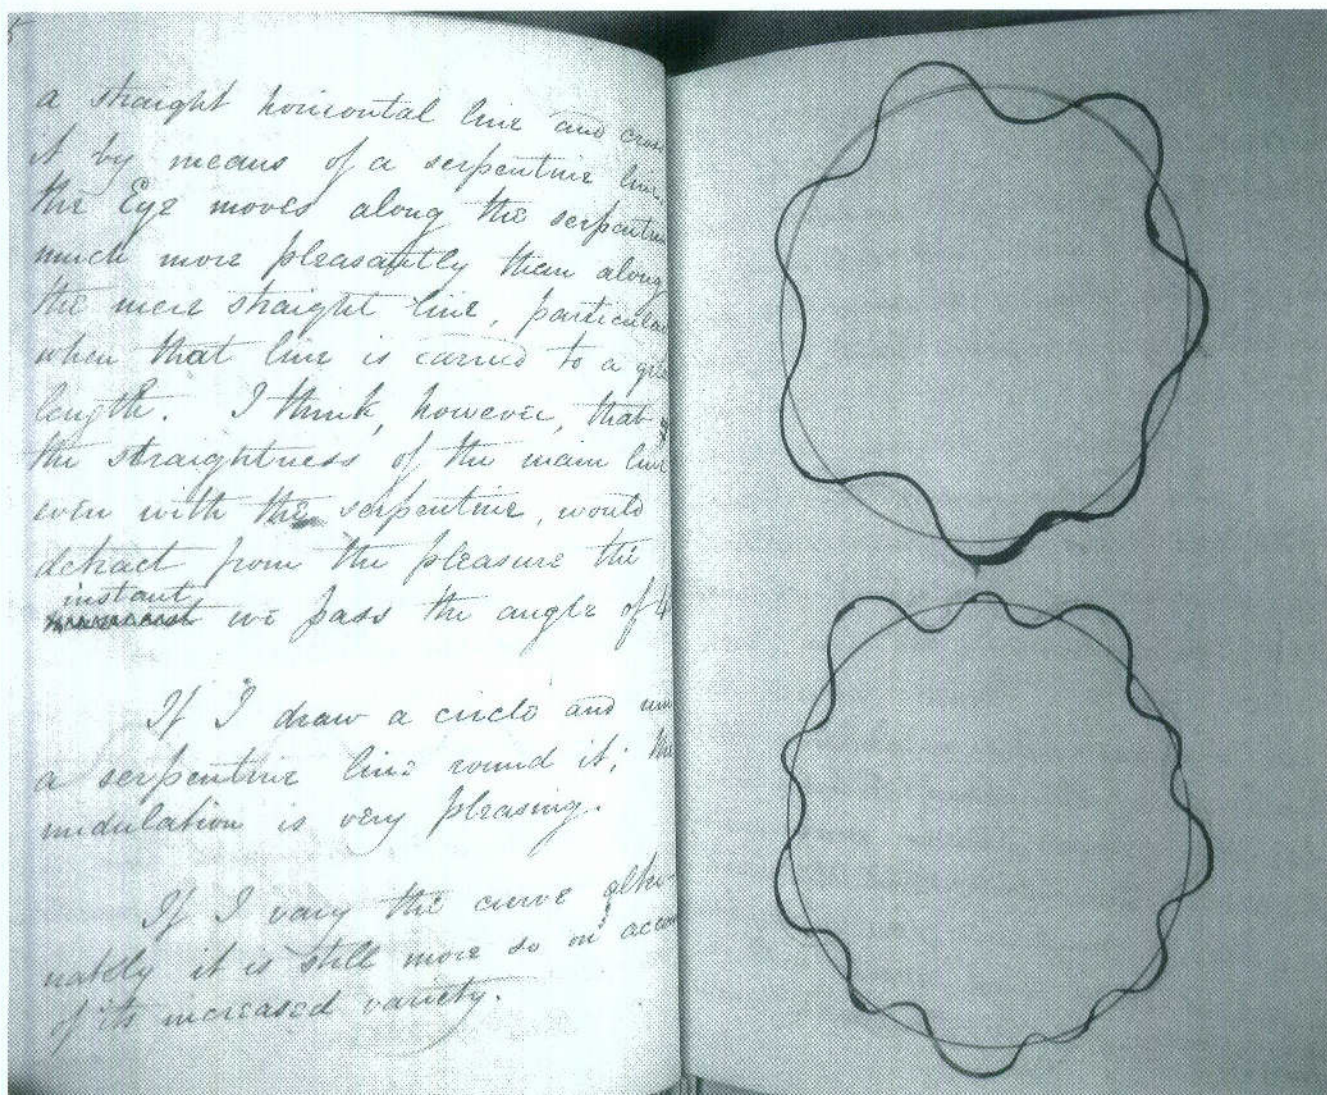 a straight horizontal line and cross
it by means of a serpentine line
the Eye moves along the serpentine
much more pleasantly than along
the mere straight line, particular
when that line is carried to a gre
length. I think, however, that
the straightness of the main line
even with the serpentine, would
detract from the pleasure the
instant
we pass the angle of 4
If I draw a circle and
a serpentine line round it; the
undulation is very pleasing.
If I vary the curve alter-
nately it is still more so on acco
of its increased variety.